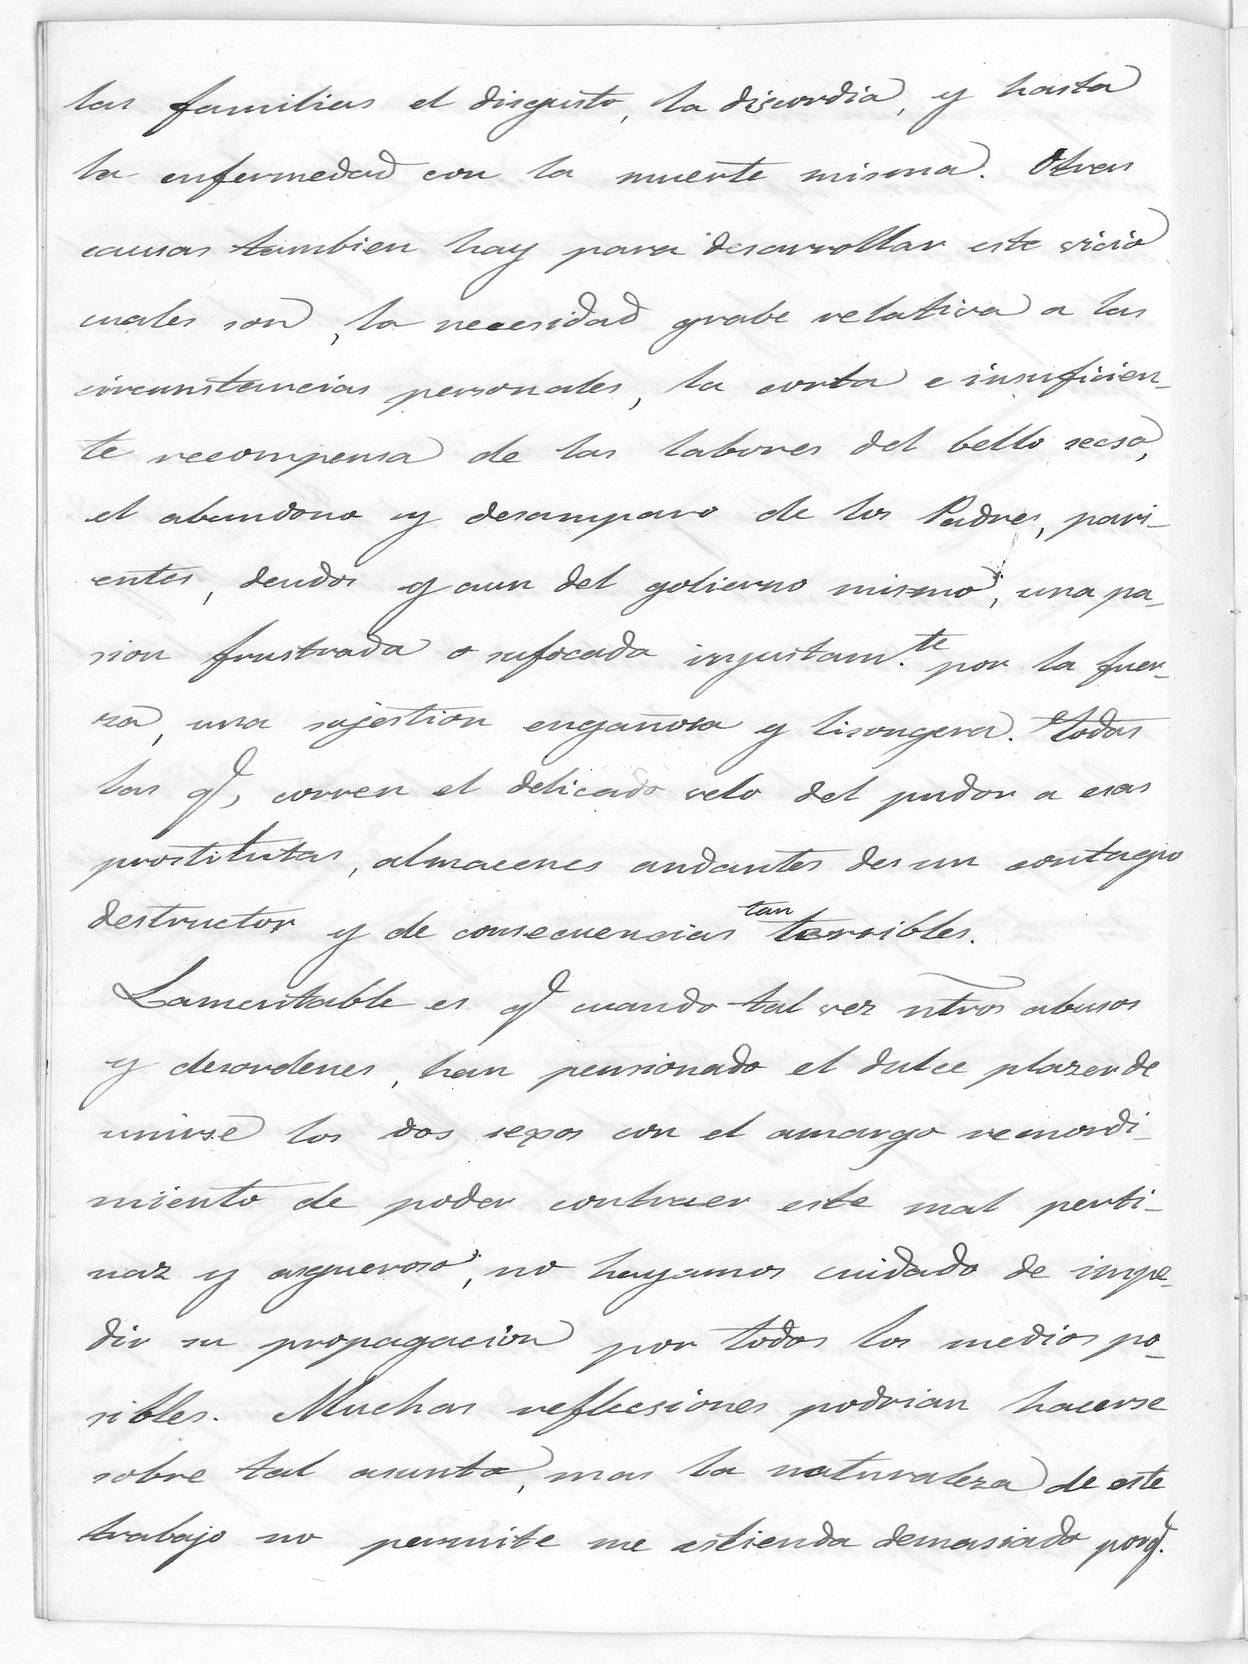 las familias el disgusto, la discordia, y hasta
la enfermedad con la muerte misma. Otras
causas tambien hay para desarrollar este vicio
cuales son, la necesidad grabe relativa a las
circunstancias personales, la corta e insuficien-
te recompensa de las labores del bello secso,
el abandono y desamparo de los Padres, pari-
entes, deudos y aun del gobierno mismo; una pa-
sion frustrada o sufocada injustam.te por la fuer-
za, una sujestion engañosa y lisongera. Todas
las q, corren el delicado velo del pudor a esas
prostitutas, almacenes andantes de un contagio
destructor y de consecuencias tan terribles.
Lamentable es q cuando tal vez ntros abusos
y desordenes, han pensionado el dulce plazer de
unirse los dos sexos con el amargo remordi-
miento de poder contraer este mal perti-
naz y asqueroso; no hayamos cuidado de impe-
dir su propagacion por todos los medios po-
sibles. Muchas reflecsiones podrian hacerse
sobre tal asunto, mas la naturaleza de este
trabajo no permite me estienda demasiado porq.